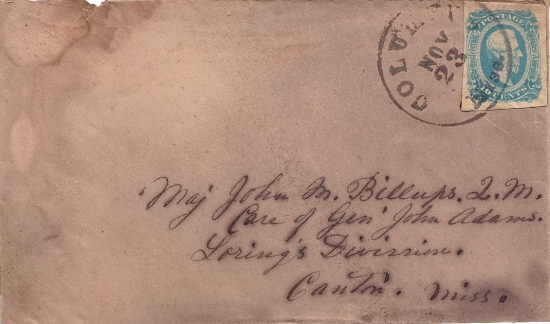 COLUM
NOV
23
POSTAGE
CENTS
Maj John M. Billups. Q. M.
Care of Gen'l John Adams.
Loring's Division.
Canton. Miss.